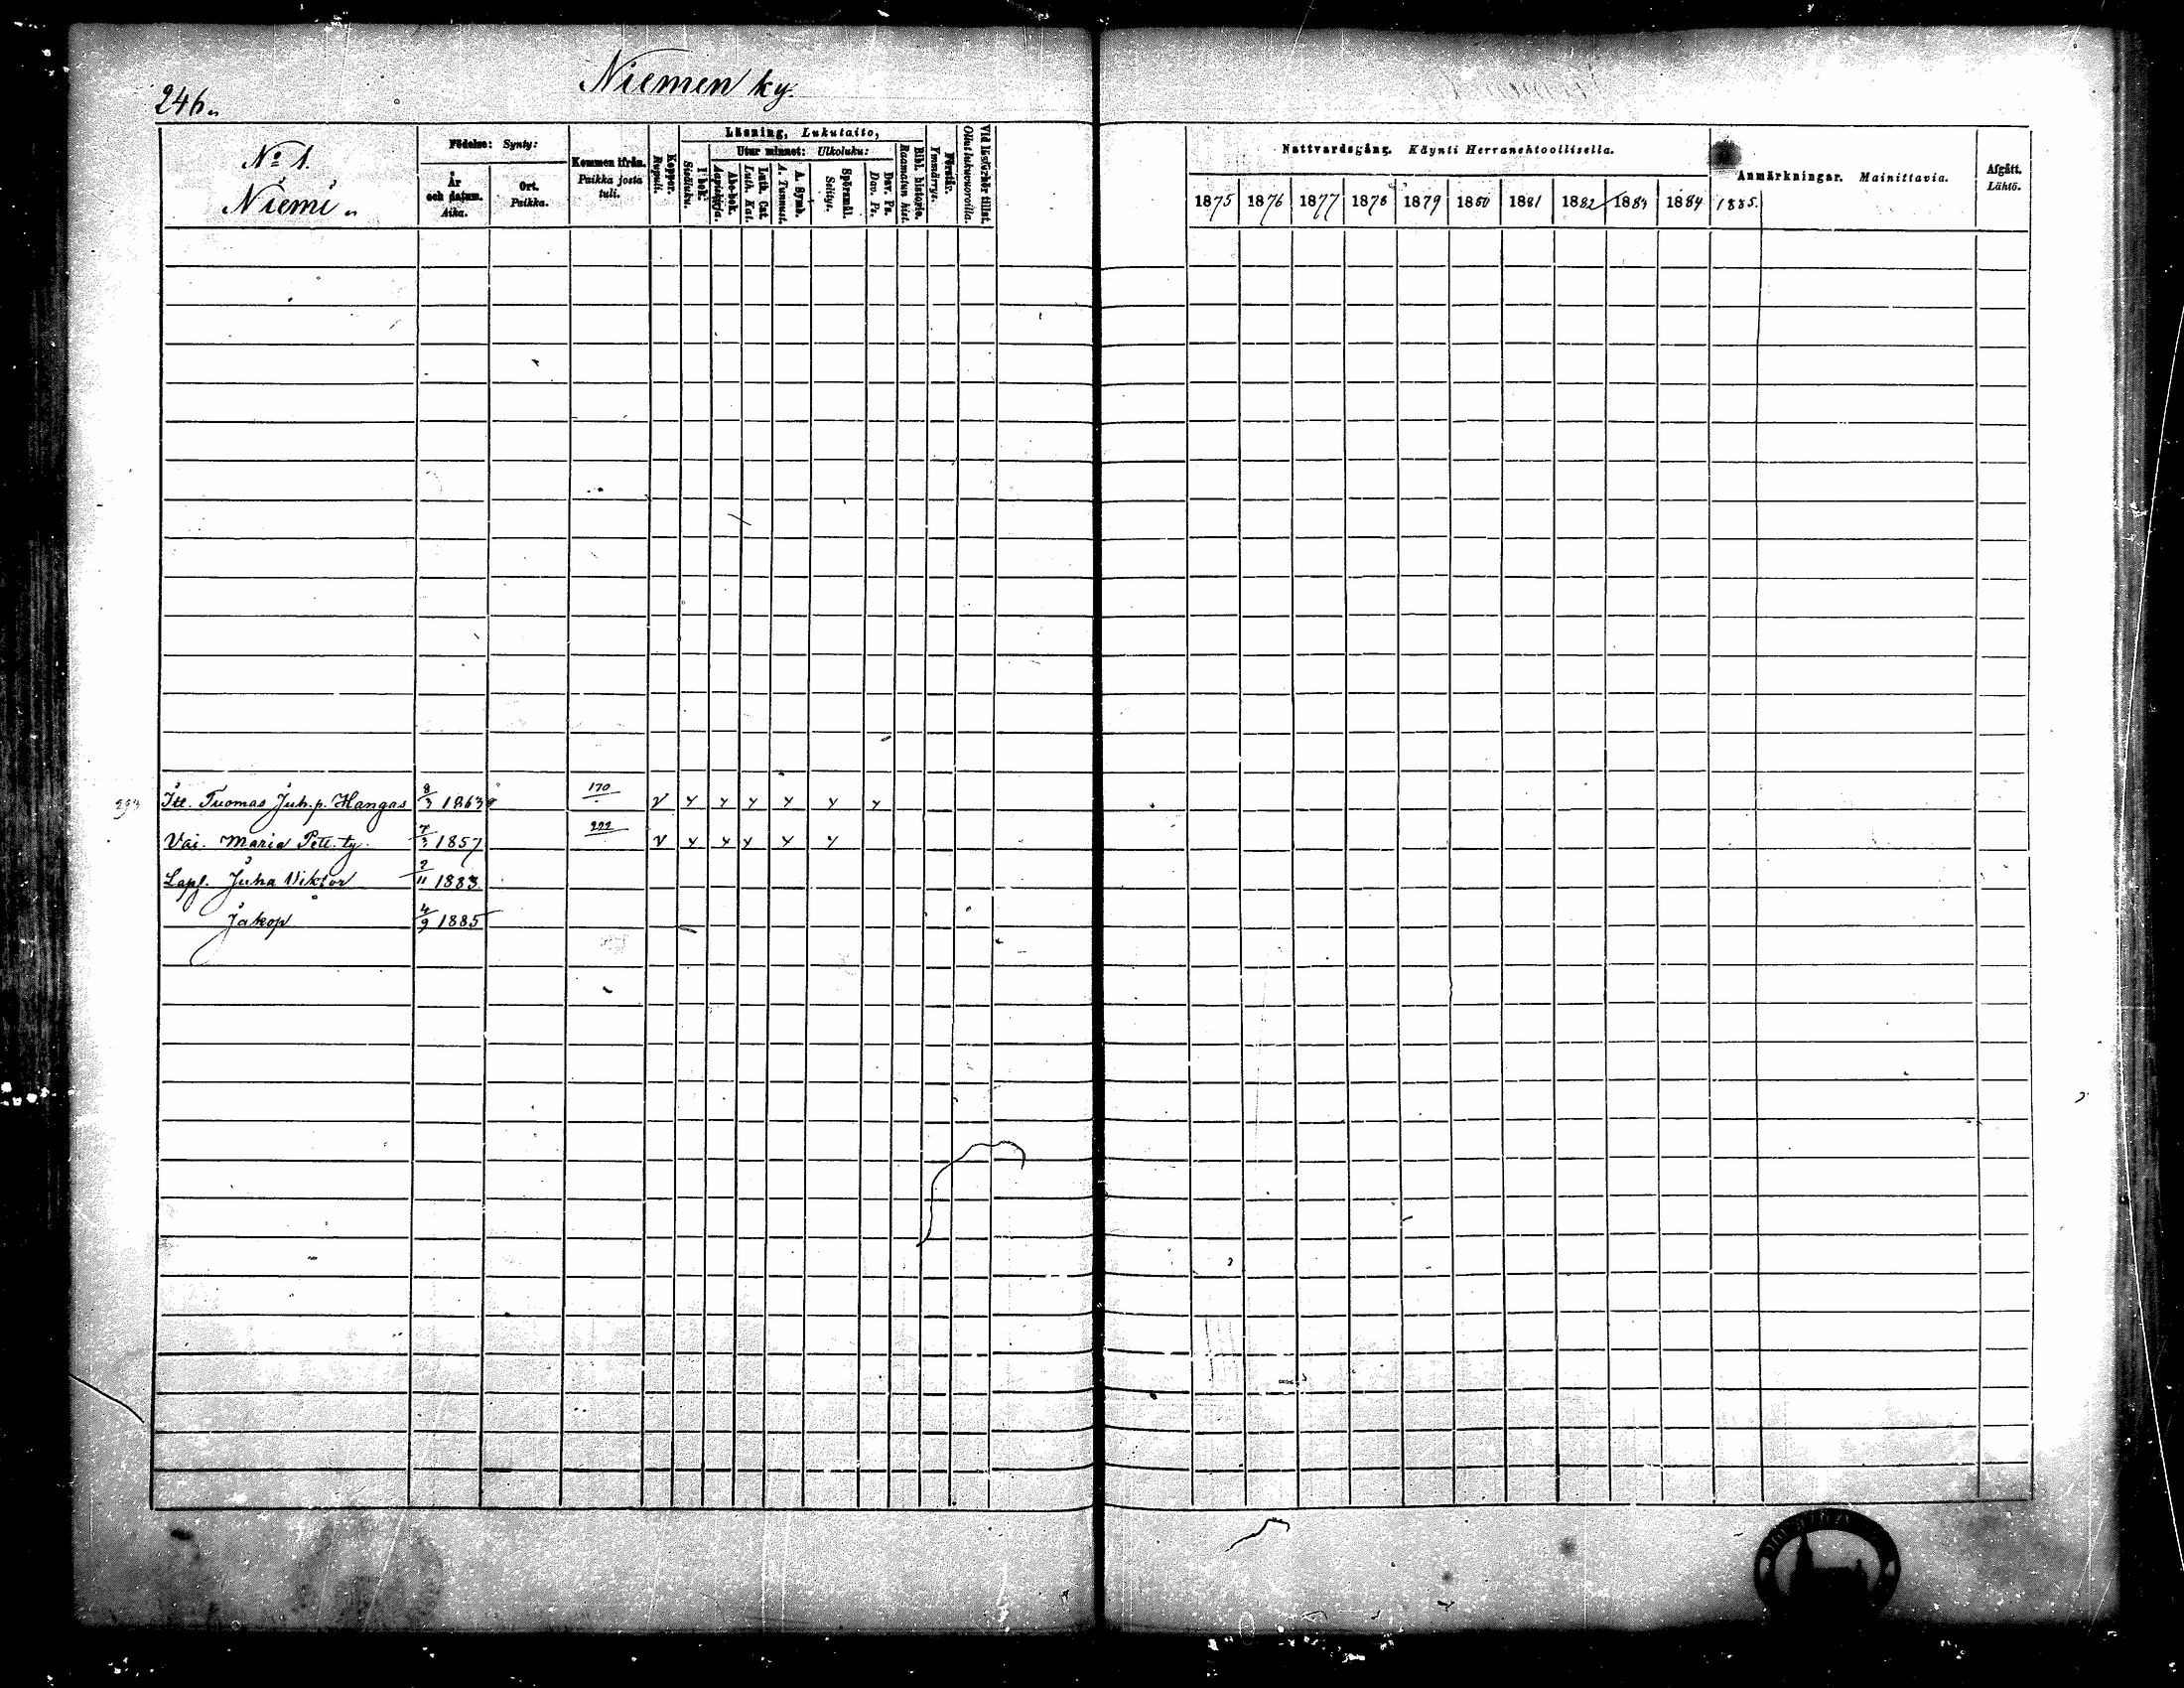 246.
Niemen ky.
No 1.
Niemi.
Födelse: Synty:
År och datum. Aika.
Ort. Paikka.
Kommen ifrån. Paikka josta tuli.
Koppor. Rupuli.
Läsning, Lukutaito,
I bok. Sisäluku.
Utur minnet: Ulkoluku:
Abc-bok. Aapiskirja.
Luth. Cat. Luth. Kat.
A. Symb. A. Tunnust.
Spörsmål. Selitys.
Dav. Ps. Dav. Ps.
Bibl. historie. Raamatun hist.
Förstår. Ymmärrys.
Vid läsförhör tillst. Ollut lukuvuoroilla.
Nattvardsgång. Käynti Herranehtoollisella.
1875 1876 1877 1878 1879 1880 1881 1882 1883 1884 1885.
Anmärkningar. Mainittavia.
Afgått. Lähtö.
Itl. Tuomas Juh. p. Hangas 8/3 1863 170 v y y y y y y
Vai. Maria Pett. ty. 7/3 1857 222 v y y y y y
Laps. Juha Viktor 2/11 1883
Jakop 4/9 1885